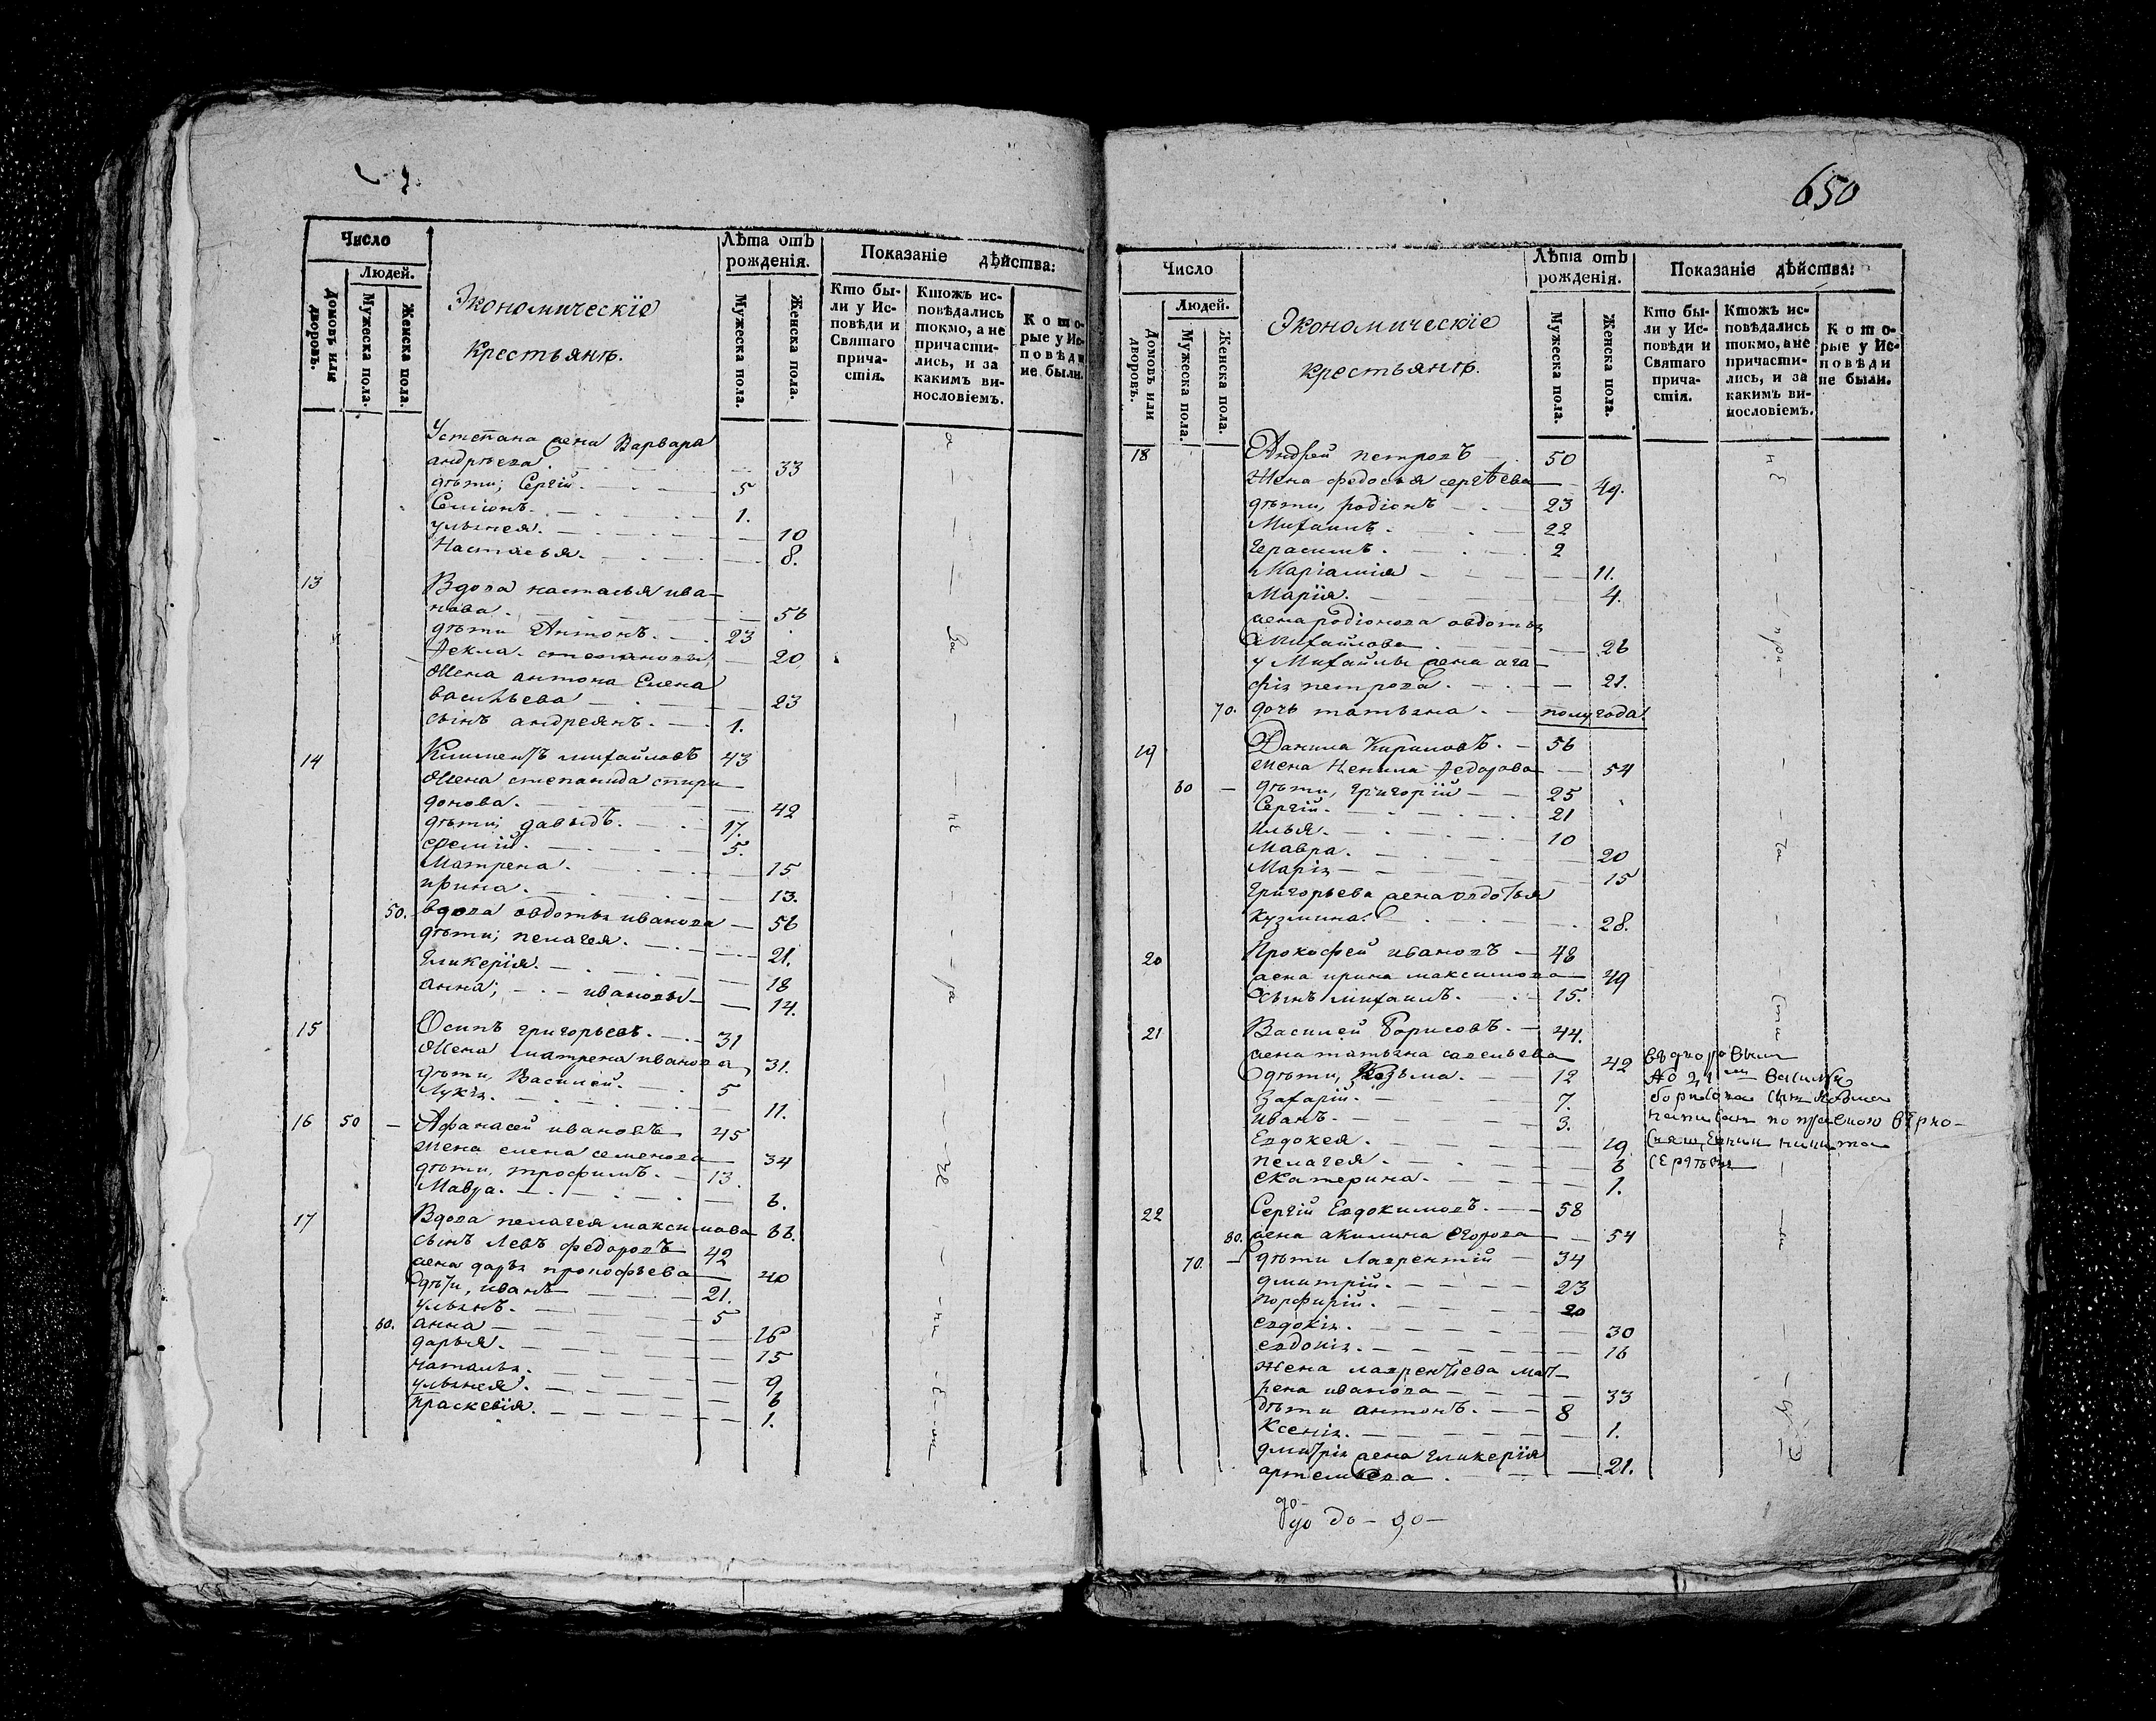 Число
Людей.
Домовъ или дворовъ.
Мужеска пола.
Женска пола.
Экономическіе
крестьянѣ.
Лѣта отъ рожденія.
Мужеска пола.
Женска пола.
Показаніе дѣйства:
Кто бы-
ли у Ис-
повѣди и
Святаго
прича-
стія.
Ктожъ ис-
повѣдались
токмо, а не
причасти-
лись, и за
какимъ ви-
нословіемъ.
Кото-
рые у Ис-
повѣди
не были.
Устепана жена Варвара
андрѣева. 33
дѣти; Сергій. 5
Семіонъ. 1.
ульянея. 10
Настасья. 8.
13 Вдова настасья ива-
нова. 56
дѣти Антонъ. 23
Фекла. степановы 20
Жена антона Елена
васильева 23
сынъ андреянъ. 1.
14 Климентъ михайловъ 43
Жена степанида спири
донова. 42
дѣти; давыдъ. 17.
ефемій. 5.
Матрена. 15
ирина. 13.
50. вдова овдотья иванова 56
дѣти; пелагея. 21.
Гликерія. 18
анна; ивановы 14.
15 Осипъ григорьевъ. 31
Жена матрена иванова 31.
дѣти, Василей. 5
Лукія. 11.
16 50 Афанасей ивановъ 45
Жена елена семенова 34
дѣти, трофимъ. 13.
Мавра. 6.
17 Вдова пелагея максимова 66.
сынъ Левъ федоровъ 42
жена дарья прокофьева 40
дѣти, иванъ 21.
ульянъ. 5
60. анна 16
дарья. 15
наталья. 9
ульянея. 6
праскевія. 1.
650
Число
Людей.
Домовъ или дворовъ.
Мужеска пола.
Женска пола.
Экономическіе
крестьянѣ.
Лѣта отъ рожденія.
Мужеска пола.
Женска пола.
Показаніе дѣйства:
Кто бы-
ли у Ис-
повѣди и
Святаго
прича-
стія.
Ктожъ ис-
повѣдались
токмо, а не
причасти-
лись, и за
какимъ ви-
нословіемъ.
Кото-
рые у Ис-
повѣди
не были.
18 Андрей петровъ 50
Жена федосья сергѣева 49.
дѣти, родіонъ 23
Михаилъ. 22
Герасимъ. 2
Маріамія 11.
Марія. 4.
жена родіонова овдотья
Михайлова 26
у Михайлы жена ага-
фія петрова. 21.
70. дочь татьяна. полугода.
19 Данила Кириловъ. 56
жена Ненила Федорова 54
60 дѣти, григорій 25
Сергій. 21
илья. 10
Мавра. 20
Марія 15
григорьева жена овдотья
кузмина. 28.
20 Прокофей ивановъ 48
жена ирина максимова 49
сынъ михаилъ. 15.
21 Василей Борисовъ. 44.
жена татьяна савельева 42
дѣти, Козьма. 12
Захарій. 7.
иванъ. 3.
Евдокея. 19
пелагея. 6
екатерина. 1.
22 Сергій Евдокимовъ. 58
80. жена акилина егорова 54
70. дѣти Лаврентій 34
дмитрій. 23
порфирій. 20
евдокія. 30
евдокія. 16
жена лаврентіева мат-
рена иванова 33
дѣти антонъ. 8
Ксенія. 1.
дмитрія жена гликерія
артемьева. 21.